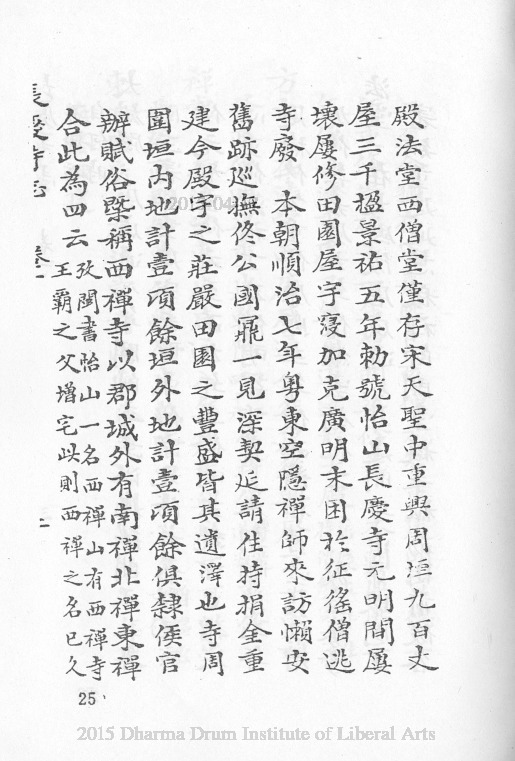 殿法堂西僧堂僅存宋天聖中重興周垣九百丈
屋三千楹景祐五年勅號怡山長慶寺元明間屢
壞屢修田園屋宇寖加克廣明末困於征徭僧逃
寺廢　本朝順治七年粵東空隱禪師來訪懶安
舊跡巡撫佟公國鼐一見深契延請住持捐金重
建今殿宇之莊嚴田園之豐盛皆其遺澤也寺周
圍垣內地計壹頃餘垣外地計壹頃餘俱隸侯官
辦賦俗槩稱西禪寺以郡城外有南禪北禪東禪
合此為四云
攷閩書怡山一名西禪山有西禪寺
王霸之父增宅此則西禪之名已久
長慶寺志　卷一
25
2015 Dharma Drum Institute of Liberal Arts